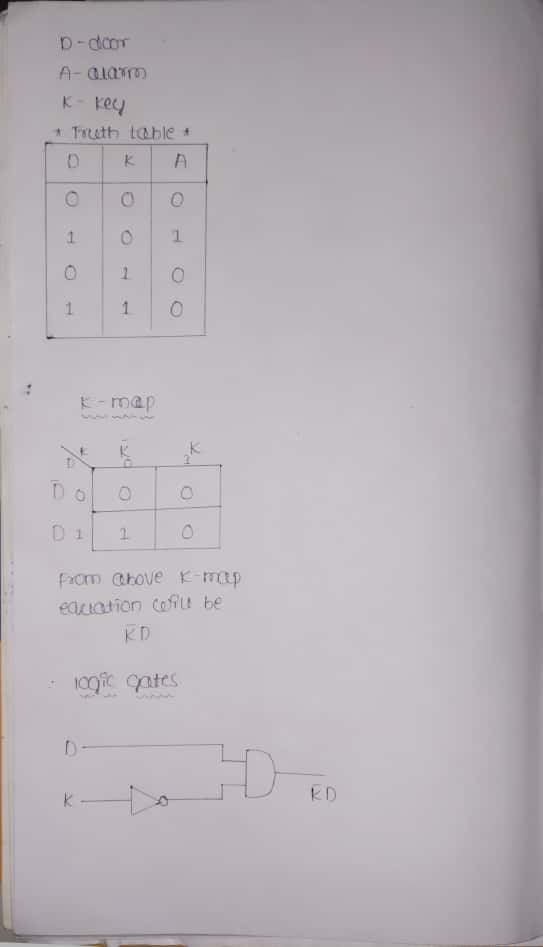 D - door
A - alarm
K - key
* Truth table *
D K A
0 0 0
1 0 1
0 1 0
1 1 0
K - map
K K̄ K
D 0 1
D̄ 0 0 0
D 1 1 0
From above K-map
equation will be
K̄D
logic gates
D
K
K̄D